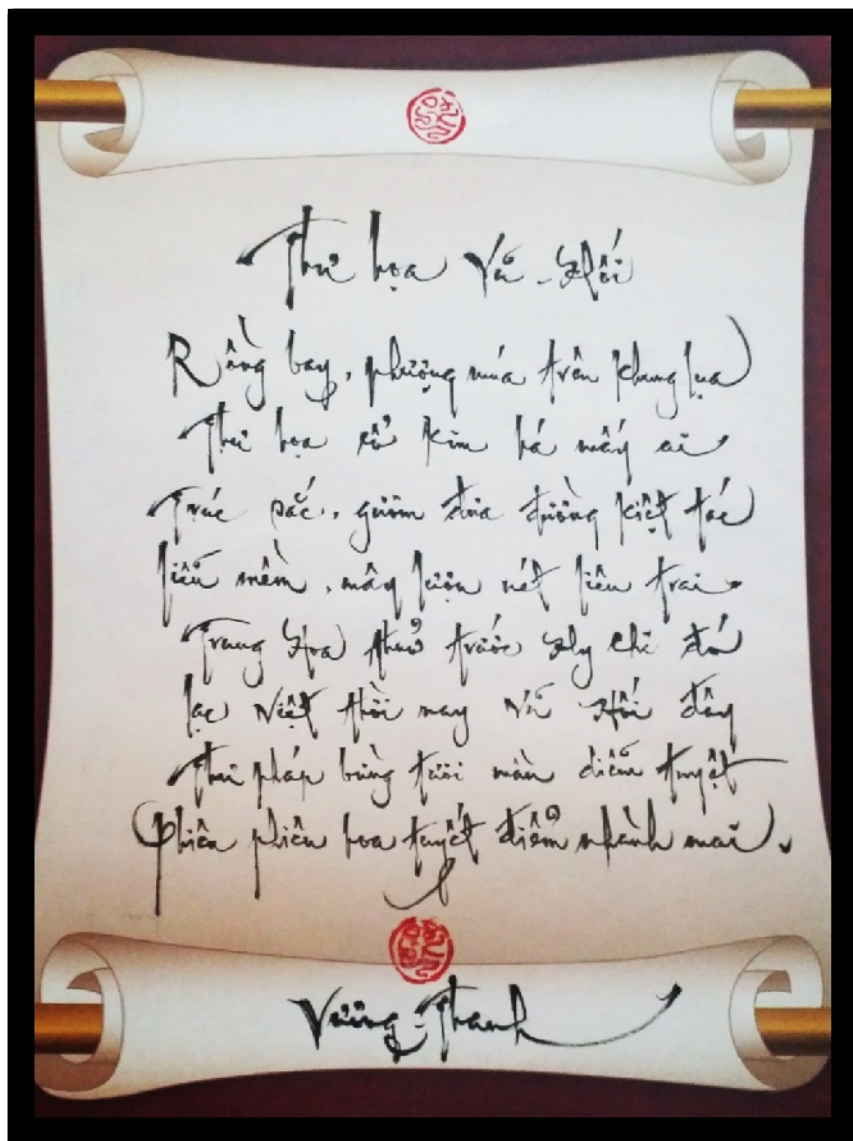 Thư họa Vũ - Hối
Rồng bay, phượng múa trên khung lụa
Thư họa cổ kim há mấy ai
Trúc sắc, gươm đưa đường kiệt tác
Liễu mềm, mây lượn nét liêu trai
Trung Hoa thuở trước Hy Chi đó
Lạc Việt thời nay Vũ Hối đây
Thư pháp bừng tươi màn diễm tuyệt
Phiên phiên hoa tuyết điểm nhành mai.
Vương - Thanh